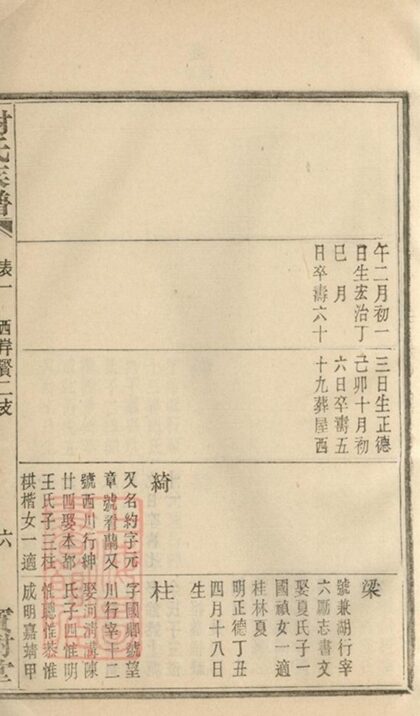 午二月初一
日生宏治丁
巳　月
日卒壽六十
三日生正德
己卯十月初
六日卒壽五
十九葬屋西
綺
又名約字元
章號看蘭又
號西川行紳
廿四娶本都
王氏子三柱
棋楷女一適
梁
號兼湖行宰
六勵志書文
娶夏氏子一
國禎女一適
桂林夏
明正德丁丑
四月十八日
生
柱
字國卿號望
川行宰十二
娶河清濤陳
氏子四惟明
惟聰惟泰惟
成明嘉靖甲
氏家譜
表一
西岸賢二支
六